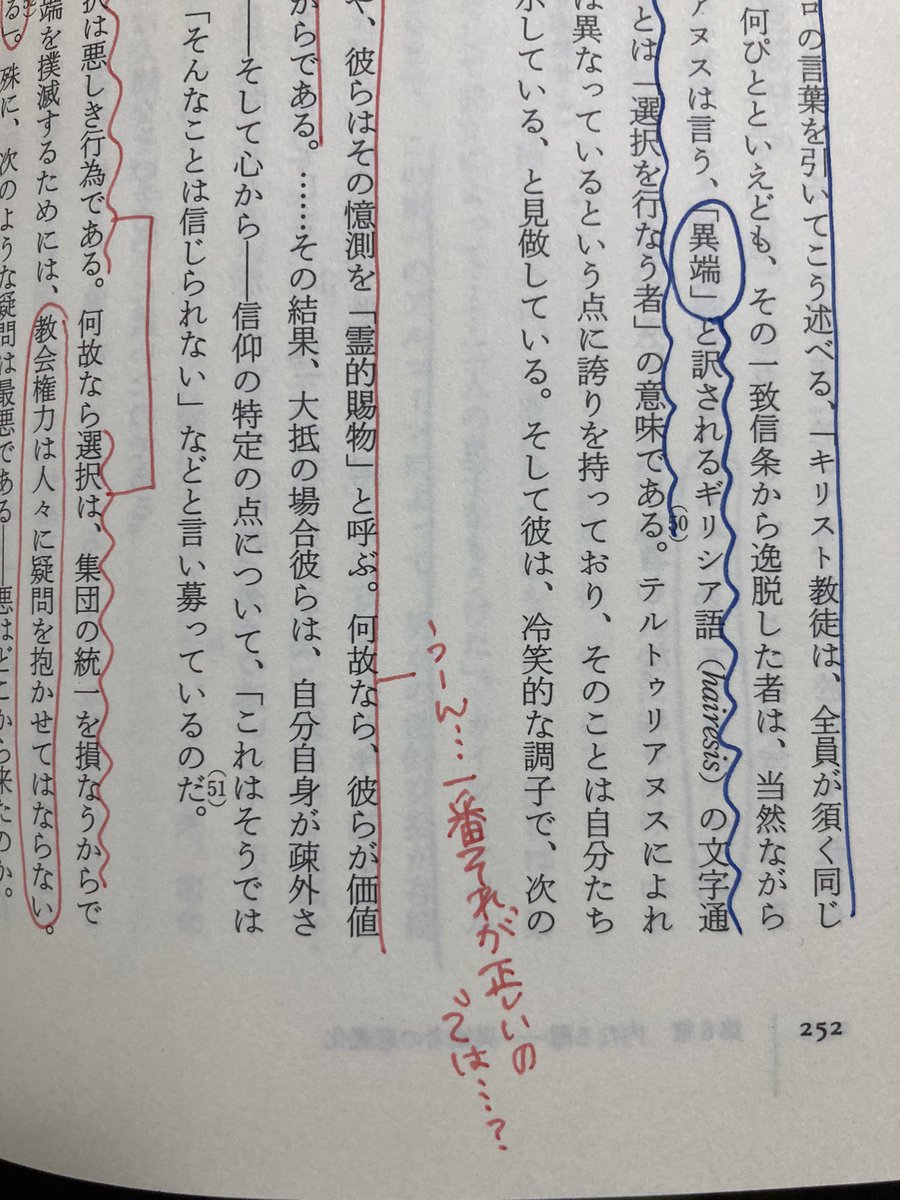 の言葉を引いてこう述べる、「キリスト教徒は、全員が須く同じ
何ぴとといえども、その一致信条から逸脱した者は、当然ながら
アヌスは言う、「異端」と訳されるギリシア語(hairesis)の文字通
とは「選択を行なう者」の意味である。(50)テルトゥリアヌスによれ
は異なっているという点に誇りを持っており、そのことは自分たち
示している、と見做している。そして彼は、冷笑的な調子で、次の
や、彼らはその憶測を「霊的賜物」と呼ぶ。何故なら、彼らが価値
からである。……その結果、大抵の場合彼らは、自分自身が疎外さ
――そして心から――信仰の特定の点について、「これはそうでは
「そんなことは信じられない」などと言い募っているのだ。(51)
択は悪しき行為である。何故なら選択は、集団の統一を損なうからで
端を撲滅するためには、教会権力は人々に疑問を抱かせてはならない。
る」。殊に、次のような疑問は最悪である――悪はどこから来たのか。
うーん…一番それが正しいの
では…?
252